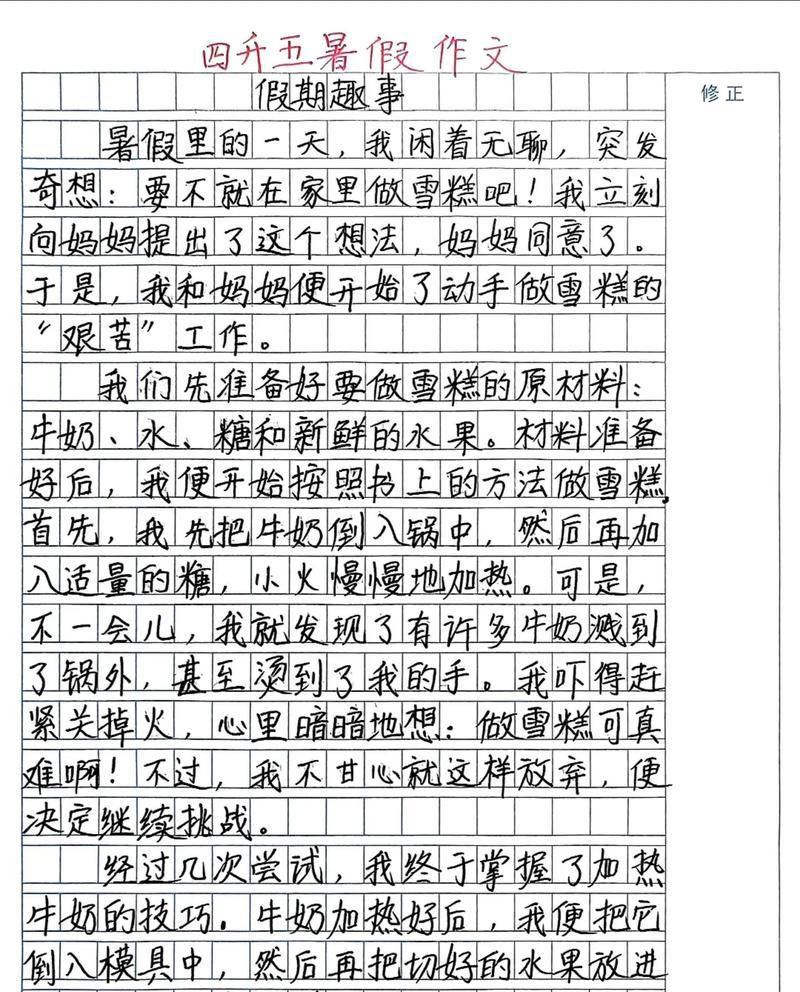 四升五暑假作文
假期趣事
修正
暑假里的一天，我闲着无聊，突发
奇想：要不就在家里做雪糕吧！我立刻
向妈妈提出了这个想法，妈妈同意了。
于是，我和妈妈便开始了动手做雪糕的
“艰苦”工作。
我们先准备好要做雪糕的原材料：
牛奶、水、糖和新鲜的水果。材料准备
好后，我便开始按照书上的方法做雪糕，
首先，我先把牛奶倒入锅中，然后再加
入适量的糖，小火慢慢地加热。可是，
不一会儿，我就发现了有许多牛奶溅到
了锅外，甚至烫到了我的手。我吓得赶
紧关掉火，心里暗暗地想：做雪糕可真
难啊！不过，我不甘心就这样放弃，便
决定继续挑战。
经过几次尝试，我终于掌握了加热
牛奶的技巧。牛奶加热好后，我便把它
倒入模具中，然后再把切好的水果放进